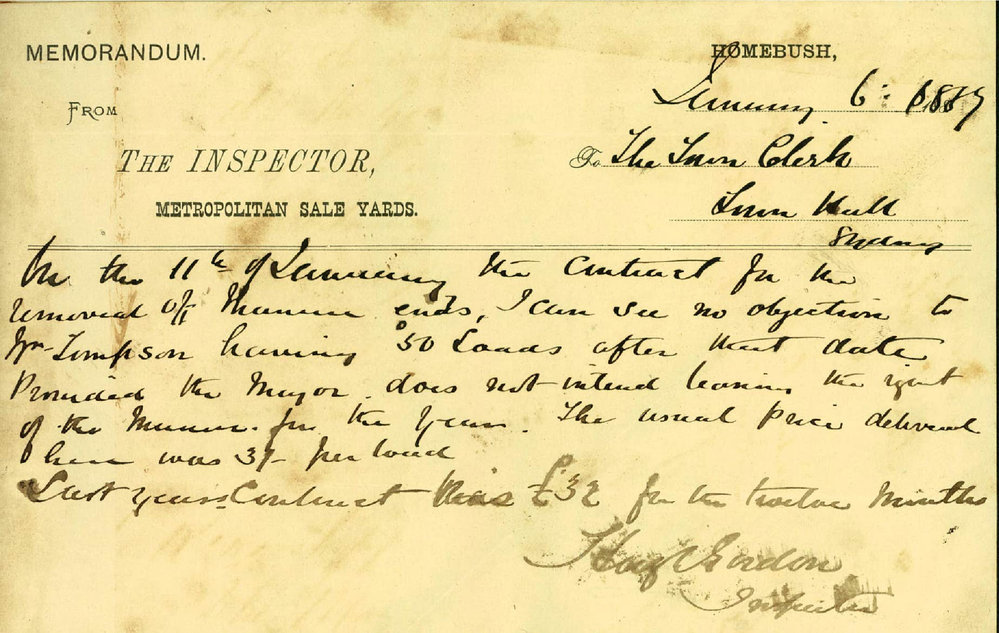 MEMORANDUM.
HOMEBUSH,
January 6th 1887
FROM
THE INSPECTOR,
METROPOLITAN SALE YARDS.
To The Town Clerk
Town Hall
Sydney
On the 11th of January the Contract for the
removal off Manure ends, I can see no objection to
Wm Tompson having 50 Loads after that date
Provided the Mayor does not intend leasing the right
of the Manure for the Year. The usual Price delivered
here was 3/- per load
Last years Contract was £32 for the twelve Months
Gordon
Inspector